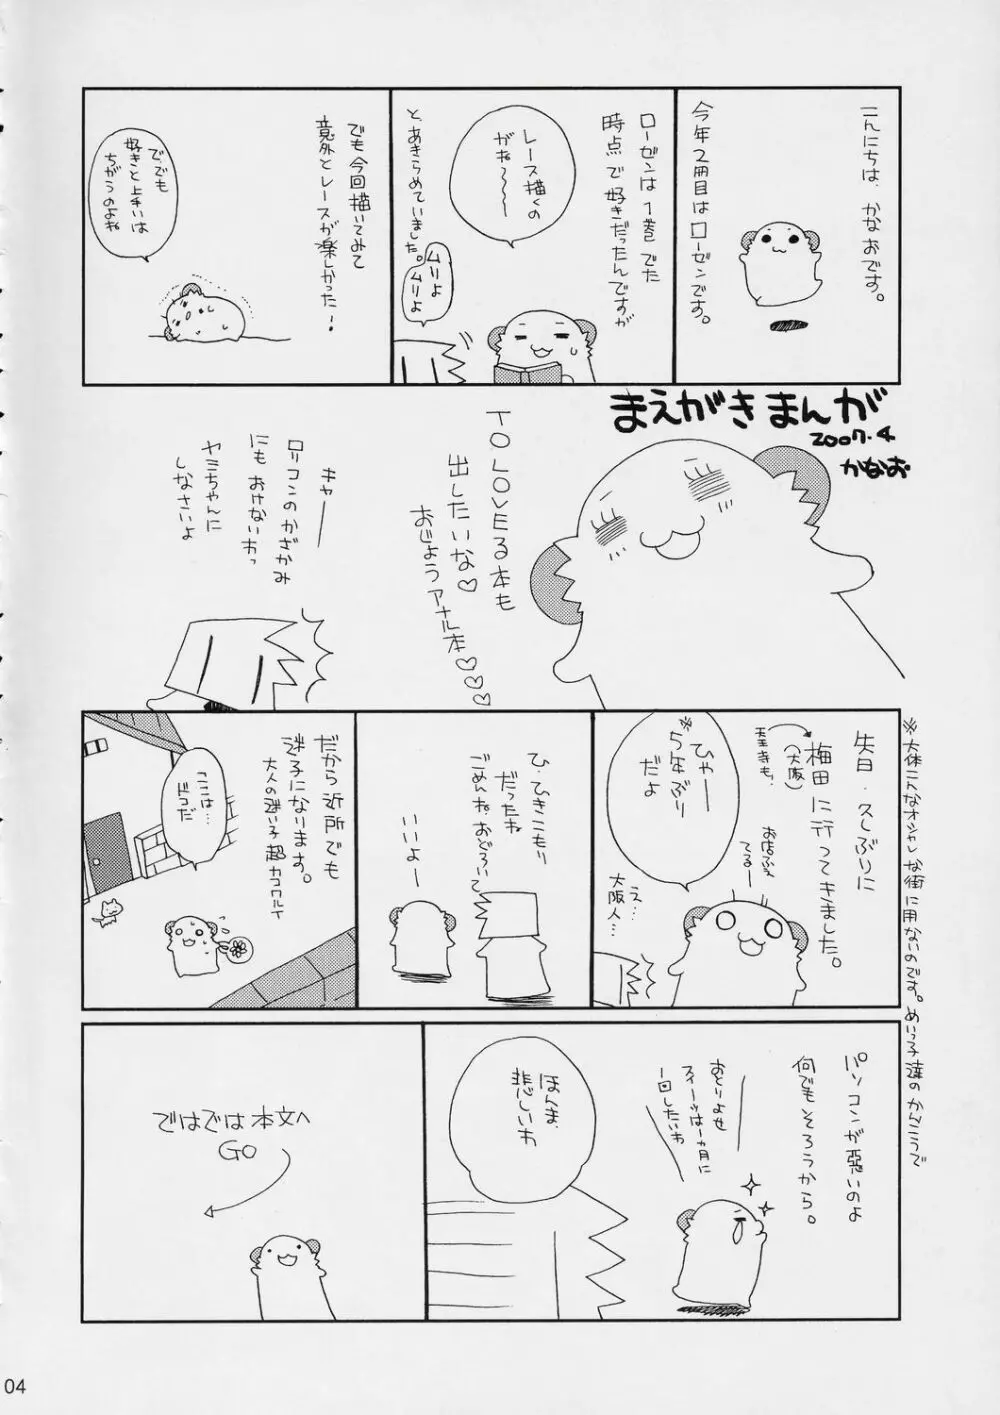 こんにちは、かなおです。
今年2冊目はローゼンです。
ローゼンは1巻でた
時点で好きだったんですが
レース描くの
がね〜〜〜
と、あきらめていました。
ムリよ
ムリよ
でも今回描いてみて
意外とレースが楽しかった!
で、でも
好きと上手いは
ちがうのよね
まえがきまんが
2007.4
かなお
TO LOVEる本も
出したいな♡
おじょうアナル本♡♡♡
キャーー
ロリコンのかざかみ
にもおけないわっ
ヤミちゃんに
しなさいよ
先日、久しぶりに
梅田に行ってきました。
(大阪)
天王寺も、
お店ふえ
てるー
ひゃー
※5年ぶり
だよ
え…
大阪人…
※大体こんなオシャレな街に用がないのです。めいっ子達のかんこうで
ひ・ひきこもり
だったね
ごめんね、おどろいて
いいよー
だから近所でも
迷子になります。
大人の迷い子超カコワルイ
ここは…
ドコだ
パソコンが悪いのよ
何でもそろうから。
おとりよせ
スイーツは1ヵ月に
1回したいわ
ほんま、
悲しいわ
ではでは本文へ
GO
04